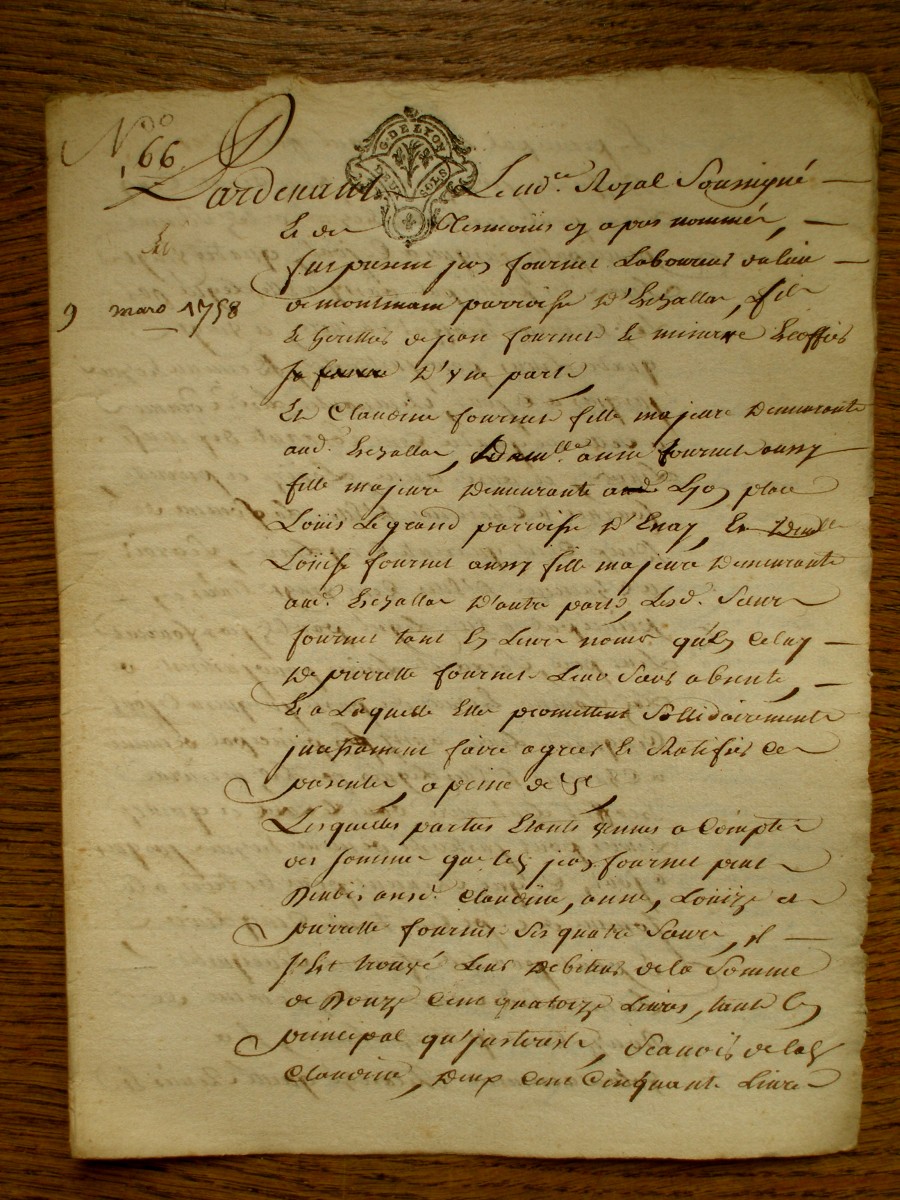 N.o
66
G. DE LYON
SOLS
Pardevant Le nore Royal Soussigné
Et de Temoins cy apres nommés,
fut present jean fournet Laboureur du lieu
de montmain parroisse D'Echallas, fils
Et heritier de jean fournet Et
D'vne part,
9 mars 1758
Et Claudine fournet fille majeure Demeurante
aud. Echallas, Et Dem.lle anne fournet aussy
fille majeure Demeurante a Lyon place
Loüis Le grand parroisse D'Enay, Et Dem.lle
Loüise fournet aussy fille majeure Demeurante
aud. Echallas D'autre part, Lesd. Sœurs
fournet tant En Leurs noms qu'En Celuy
De pierrette fournet Leur Sœur absente,
Et a Laquelle Elles promettent Sollidairement
faire agreer Et Ratifier Ces
presentes, a peine de
Lesquelles parties Etants venues a Compte
des sommes que led. jean fournet peut
Devoir auxd. Claudine, anne, Loüize et
pierrette fournet Ses quatre Sœurs, il
S'Est trouvé Leur Debiteur de la Somme
de Douze Cent quatorze Livres, tant En
principal qu'jnterests, Scavoir de lad.
Claudine, Deux Cent Cinquante Livres